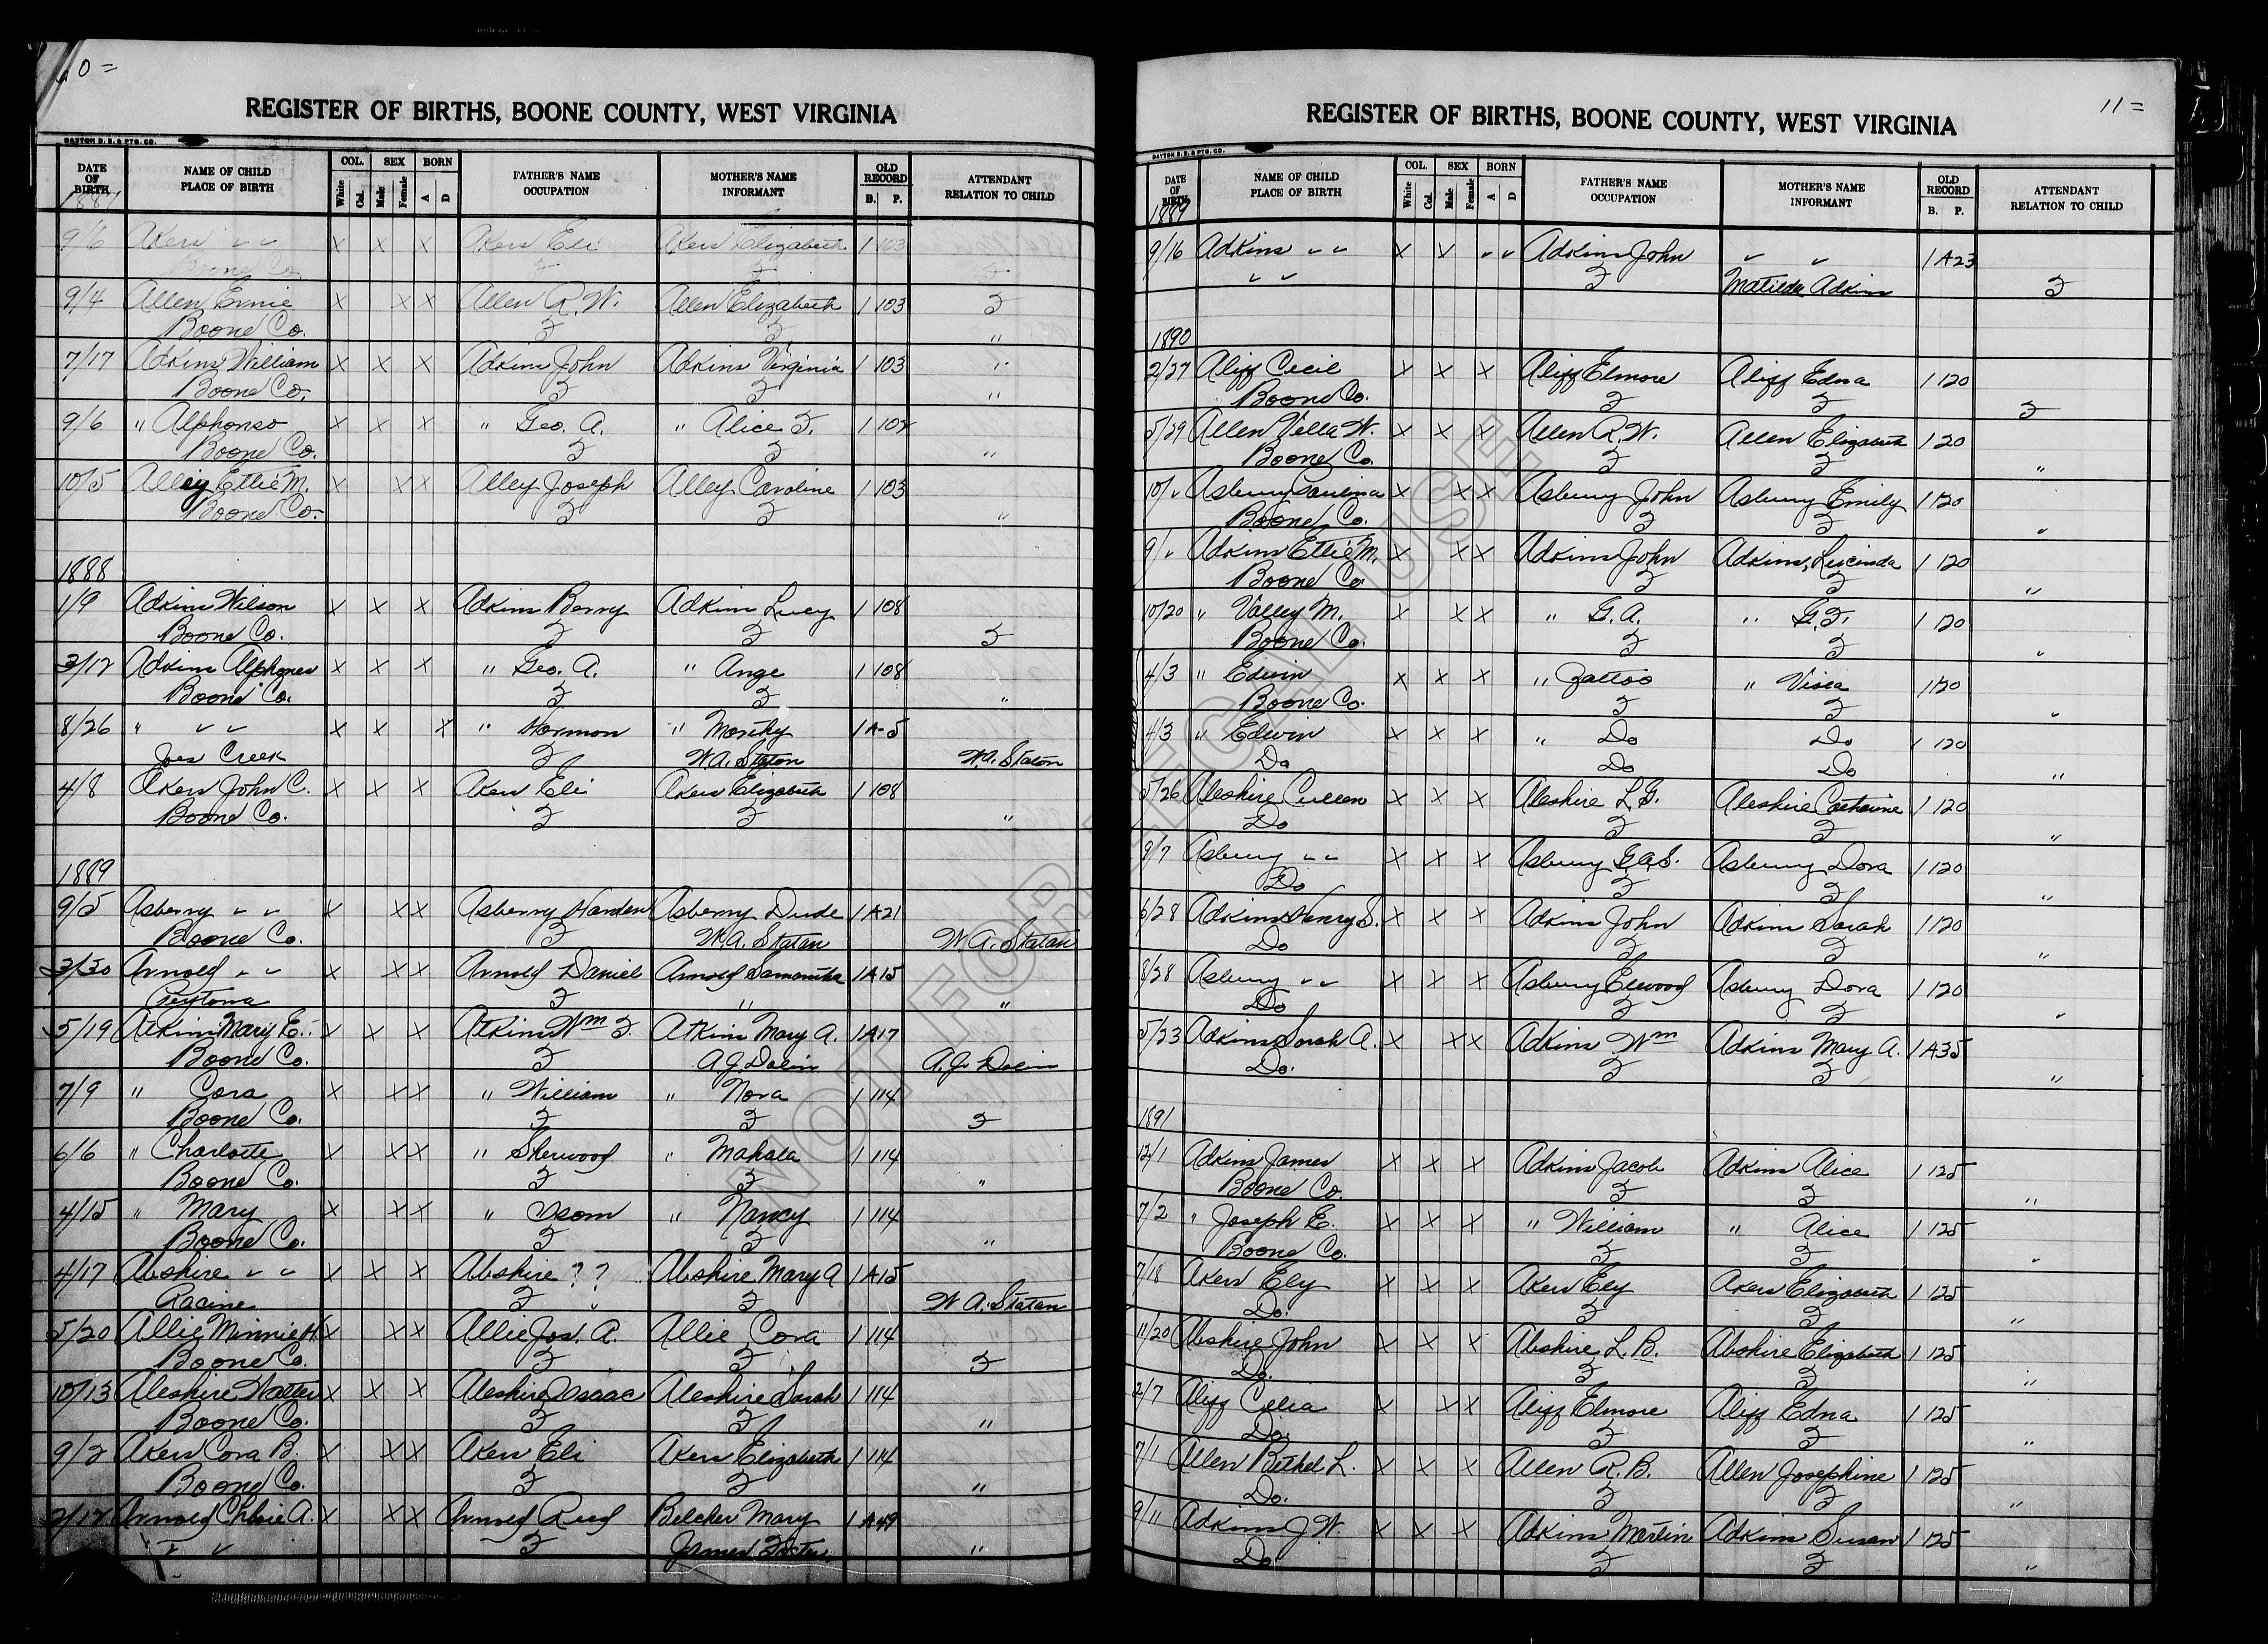 10 =
REGISTER OF BIRTHS, BOONE COUNTY, WEST VIRGINIA
DAYTON B. B. & PTG. CO.
DATE OF BIRTH NAME OF CHILD PLACE OF BIRTH COL. White Col. SEX Male Female BORN A D FATHER'S NAME OCCUPATION MOTHER'S NAME INFORMANT OLD RECORD B. P. ATTENDANT RELATION TO CHILD
1887
9/6 Akers " " x x x Akers Eli Akers Elizabeth 1 103
Boone Co. F F F
9/4 Allen Ernie x x x Allen R. W. Allen Elizabeth 1 103 F
Boone Co. F F "
7/17 Adkins William x x x Adkins John Adkins Virginia 1 103 "
Boone Co. F F "
9/6 " Alphonso x x x " Geo. A. " Alice F. 1 102
Boone Co. F F "
10/5 Alley Ettie M. x x x Alley Joseph Alley Caroline 1 103
Boone Co. F F "
1888
1/9 Adkins Wilson x x x Adkins Berry Adkins Lucy 1 108
Boone Co. F F F
3/12 Adkins Alphones x x x " Geo. A. " Ange 1 108
Boone Co. F F "
8/26 " " " x x x " Harmon " Morthy 1 A-5
Joes Creek F W.A. Staton W.A. Staton
4/8 Akers John C. x x x Akers Eli Akers Elizabeth 1 108
Boone Co. F F "
1889
9/5 Asberry " " x x x Asberry Harden Asberry Dude 1 A21
Boone Co. F W.A. Staton W.A. Staton
3/30 Arnold " " x x x Arnold Daniel Arnold Samantha 1 A15
Peytona F " "
5/19 Atkins Mary E. x x x Atkins Wm F. Atkins Mary A. 1 A17
Boone Co. F A.J. Dolin A.J. Dolin
7/9 " Cora x x x " William " Nora 1 114
Boone Co. F F F
6/6 " Charlotte x x x " Sherwood " Mahala 1 114
Boone Co. F F "
4/15 " Mary x x x " Isom " Nancy 1 114
Boone Co. F F "
4/17 Abshire " " x x x Abshire ? ? Abshire Mary A 1 A15
Racine F F W.A. Staton
5/20 Allie Minnie H. x x x Allie Jos. A. Allie Cora 1 114
Boone Co. F F F
10/13 Aleshire Walter x x x Aleshire Isaac Aleshire Sarah 1 114
Boone Co. F F "
9/2 Akers Cora B. x x x Akers Eli Akers Elizabeth 1 114
Boone Co. F F "
2/17 Arnold Chloie A. x x x Arnold Reed Belcher Mary 1 A49
" " F James Foster "
11 =
REGISTER OF BIRTHS, BOONE COUNTY, WEST VIRGINIA
DAYTON B. B. & PTG. CO.
DATE OF BIRTH NAME OF CHILD PLACE OF BIRTH COL. White Col. SEX Male Female BORN A D FATHER'S NAME OCCUPATION MOTHER'S NAME INFORMANT OLD RECORD B. P. ATTENDANT RELATION TO CHILD
1889
9/16 Adkins " " x x " " Adkins John " " 1 A23
" " F Matilda Adkins F
1890
2/27 Aliff Cecil x x x Aliff Elmore Aliff Edna 1 120
Boone Co. F F F
5/29 Allen Vella W. x x x Allen R. W. Allen Elizabeth 1 20
Boone Co. F F "
10/" Asbury x x x Asbury John Asbury Emily 1 120
Boone Co. F F "
9/" Adkins Ettie M. x x x Adkins John Adkins, Lucinda 1 120
Boone Co. F F "
10/20 " Valley M. x x x " G. A. " G. F. 1 120
Boone Co. F F "
4/3 " Edwin x x x " Zattoo " Viola 1 120
Boone Co. F F "
4/3 " Edwin x x x " Do Do 1 120
Do Do Do "
5/26 Aleshire Cullen x x x Aleshire L. G. Aleshire Catherine 1 120
Do F F "
9/7 Asbury " " x x x Asbury G.A.S. Asbury Dora 1 120
Do F F "
6/28 Adkins Henry S. x x x Adkins John Adkins Sarah 1 120
Do F F "
8/28 Asbury " " x x x Asbury Elwood Asbury Dora 1 120
Do F F "
5/23 Adkins Sarah A. x x x Adkins Wm Adkins Mary A. 1 A35
Do. F F "
1891
12/1 Adkins James x x x Adkins Jacob Adkins Alice 1 125
Boone Co. F F "
7/2 " Joseph E. x x x " William " Alice 1 125
Boone Co. F F "
7/18 Akers Ely x x x Akers Ely Akers Elizabeth 1 125
Do. F F "
11/20 Abshire John x x x Abshire L. B. Abshire Elizabeth 1 125
Do. F F "
2/7 Aliff Celia x x x Aliff Elmore Aliff Edna 1 125
Do. F F "
7/1 Allen Bethel L. x x x Allen R. B. Allen Josephine 1 125
Do. F F "
9/11 Adkins J. W. x x x Adkins Martin Adkins Susan 1 125
Do F F "